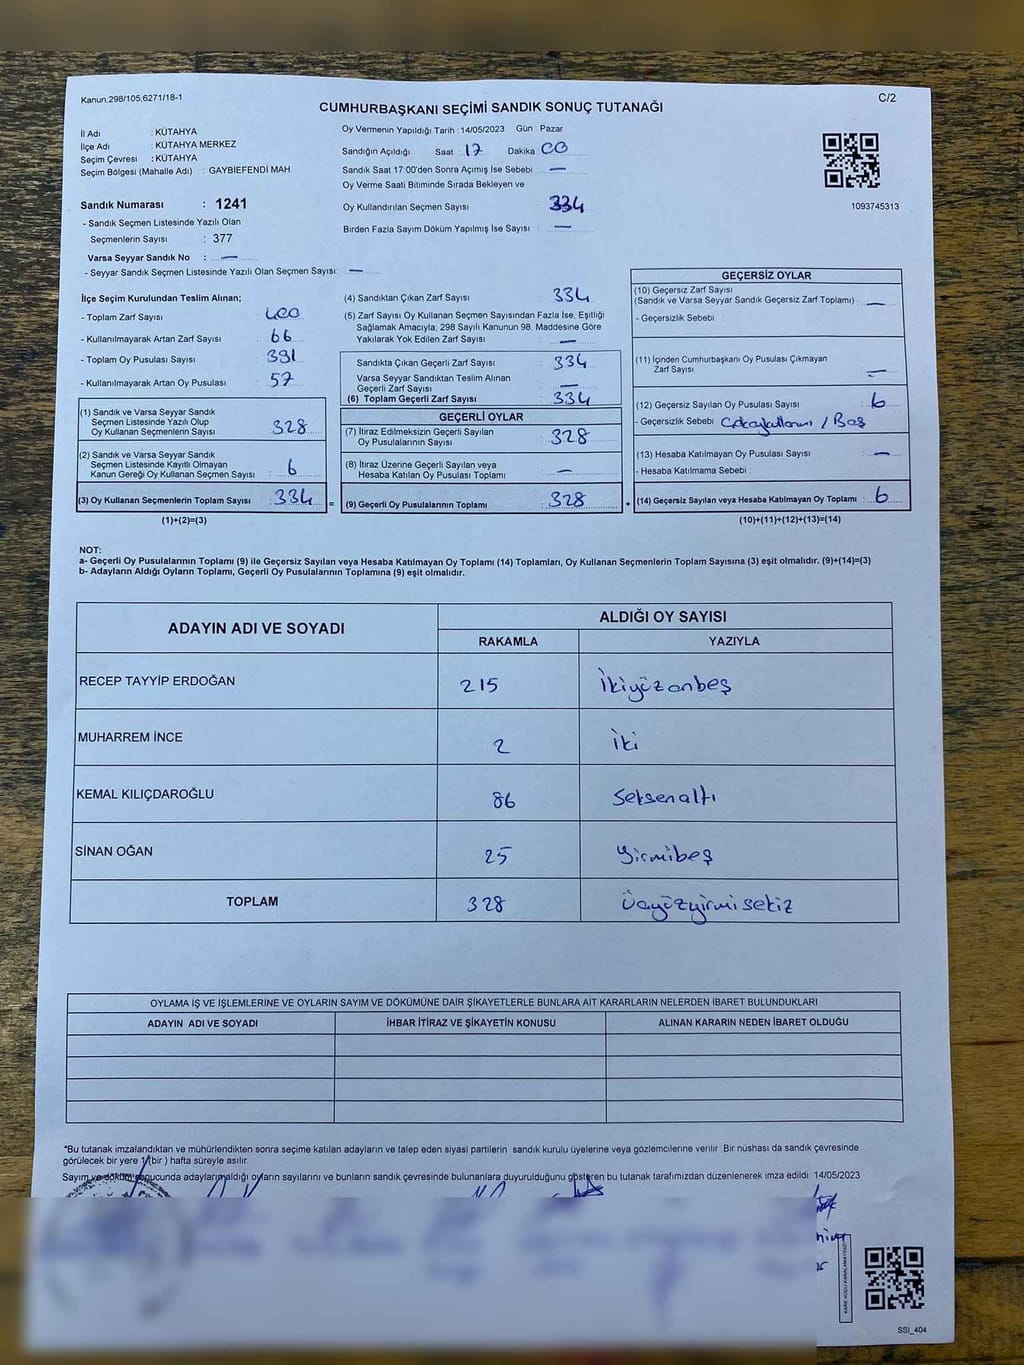 Kanun:298/105,6271/18-1
C/2
CUMHURBAŞKANI SEÇİMİ SANDIK SONUÇ TUTANAĞI
İl Adı : KÜTAHYA
İlçe Adı : KÜTAHYA MERKEZ
Seçim Çevresi : KÜTAHYA
Seçim Bölgesi (Mahalle Adı) : GAYBİEFENDİ MAH.
Sandık Numarası : 1241
- Sandık Seçmen Listesinde Yazılı Olan
Seçmenlerin Sayısı : 377
Varsa Seyyar Sandık No : —
- Seyyar Sandık Seçmen Listesinde Yazılı Olan Seçmen Sayısı: —
Oy Vermenin Yapıldığı Tarih : 14/05/2023 Gün : Pazar
Sandığın Açıldığı Saat : 17 Dakika : 00
Sandık Saat 17:00'den Sonra Açımış İse Sebebi : —
Oy Verme Saati Bitiminde Sırada Bekleyen ve
Oy Kullandırılan Seçmen Sayısı : 334
Birden Fazla Sayım Döküm Yapılmış İse Sayısı : —
1093745313
İlçe Seçim Kurulundan Teslim Alınan;
- Toplam Zarf Sayısı : 400
- Kullanılmayarak Artan Zarf Sayısı : 66
- Toplam Oy Pusulası Sayısı : 391
- Kullanılmayarak Artan Oy Pusulası : 57
(1) Sandık ve Varsa Seyyar Sandık
Seçmen Listesinde Yazılı Olup
Oy Kullanan Seçmenlerin Sayısı : 328
(2) Sandık ve Varsa Seyyar Sandık
Seçmen Listesinde Kayıtlı Olmayan
Kanun Gereği Oy Kullanan Seçmen Sayısı : 6
(3) Oy Kullanan Seçmenlerin Toplam Sayısı : 334
(1)+(2)=(3)
=
(4) Sandıktan Çıkan Zarf Sayısı : 334
(5) Zarf Sayısı Oy Kullanan Seçmen Sayısından Fazla İse, Eşitliği
Sağlamak Amacıyla; 298 Sayılı Kanunun 98. Maddesine Göre
Yakılarak Yok Edilen Zarf Sayısı : —
Sandıkta Çıkan Geçerli Zarf Sayısı : 334
Varsa Seyyar Sandıktan Teslim Alınan
Geçerli Zarf Sayısı : —
(6) Toplam Geçerli Zarf Sayısı : 334
GEÇERLİ OYLAR
(7) İtiraz Edilmeksizin Geçerli Sayılan
Oy Pusulalarının Sayısı : 328
(8) İtiraz Üzerine Geçerli Sayılan veya
Hesaba Katılan Oy Pusulası Toplamı : —
(9) Geçerli Oy Pusulalarının Toplamı : 328
+
GEÇERSİZ OYLAR
(10) Geçersiz Zarf Sayısı
(Sandık ve Varsa Seyyar Sandık Geçersiz Zarf Toplamı) : —
- Geçersizlik Sebebi :
(11) İçinden Cumhurbaşkanı Oy Pusulası Çıkmayan
Zarf Sayısı : —
(12) Geçersiz Sayılan Oy Pusulası Sayısı : 6
- Geçersizlik Sebebi : / Boş
(13) Hesaba Katılmayan Oy Pusulası Sayısı : —
- Hesaba Katılmama Sebebi :
(14) Geçersiz Sayılan veya Hesaba Katılmayan Oy Toplamı : 6
(10)+(11)+(12)+(13)=(14)
NOT:
a- Geçerli Oy Pusulalarının Toplamı (9) ile Geçersiz Sayılan veya Hesaba Katılmayan Oy Toplamı (14) Toplamları, Oy Kullanan Seçmenlerin Toplam Sayısına (3) eşit olmalıdır. (9)+(14)=(3)
b- Adayların Aldığı Oyların Toplamı, Geçerli Oy Pusulalarının Toplamına (9) eşit olmalıdır.
ADAYIN ADI VE SOYADI
ALDIĞI OY SAYISI
RAKAMLA YAZIYLA
RECEP TAYYİP ERDOĞAN 215 İkiyüzonbeş
MUHARREM İNCE 2 İki
KEMAL KILIÇDAROĞLU 86 Seksenaltı
SİNAN OĞAN 25 Yirmibeş
TOPLAM 328 Üçyüzyirmisekiz
OYLAMA İŞ VE İŞLEMLERİNE VE OYLARIN SAYIM VE DÖKÜMÜNE DAİR ŞİKAYETLERLE BUNLARA AİT KARARLARIN NELERDEN İBARET BULUNDUKLARI
ADAYIN ADI VE SOYADI İHBAR İTİRAZ VE ŞİKAYETİN KONUSU ALINAN KARARIN NEDEN İBARET OLDUĞU
*Bu tutanak imzalandıktan ve mühürlendikten sonra seçime katılan adayların ve talep eden siyasi partilerin sandık kurulu üyelerine veya gözlemcilerine verilir. Bir nüshası da sandık çevresinde
görülecek bir yere 1 (bir) hafta süreyle asılır.
Sayım ve döküm sonucunda adayların aldığı oyların sayılarını ve bunların sandık çevresinde bulunanlara duyurulduğunu gösteren bu tutanak tarafımızdan düzenlenerek imza edildi. 14/05/2023
KARE KODU KARALAMAYINIZ
SSI_404